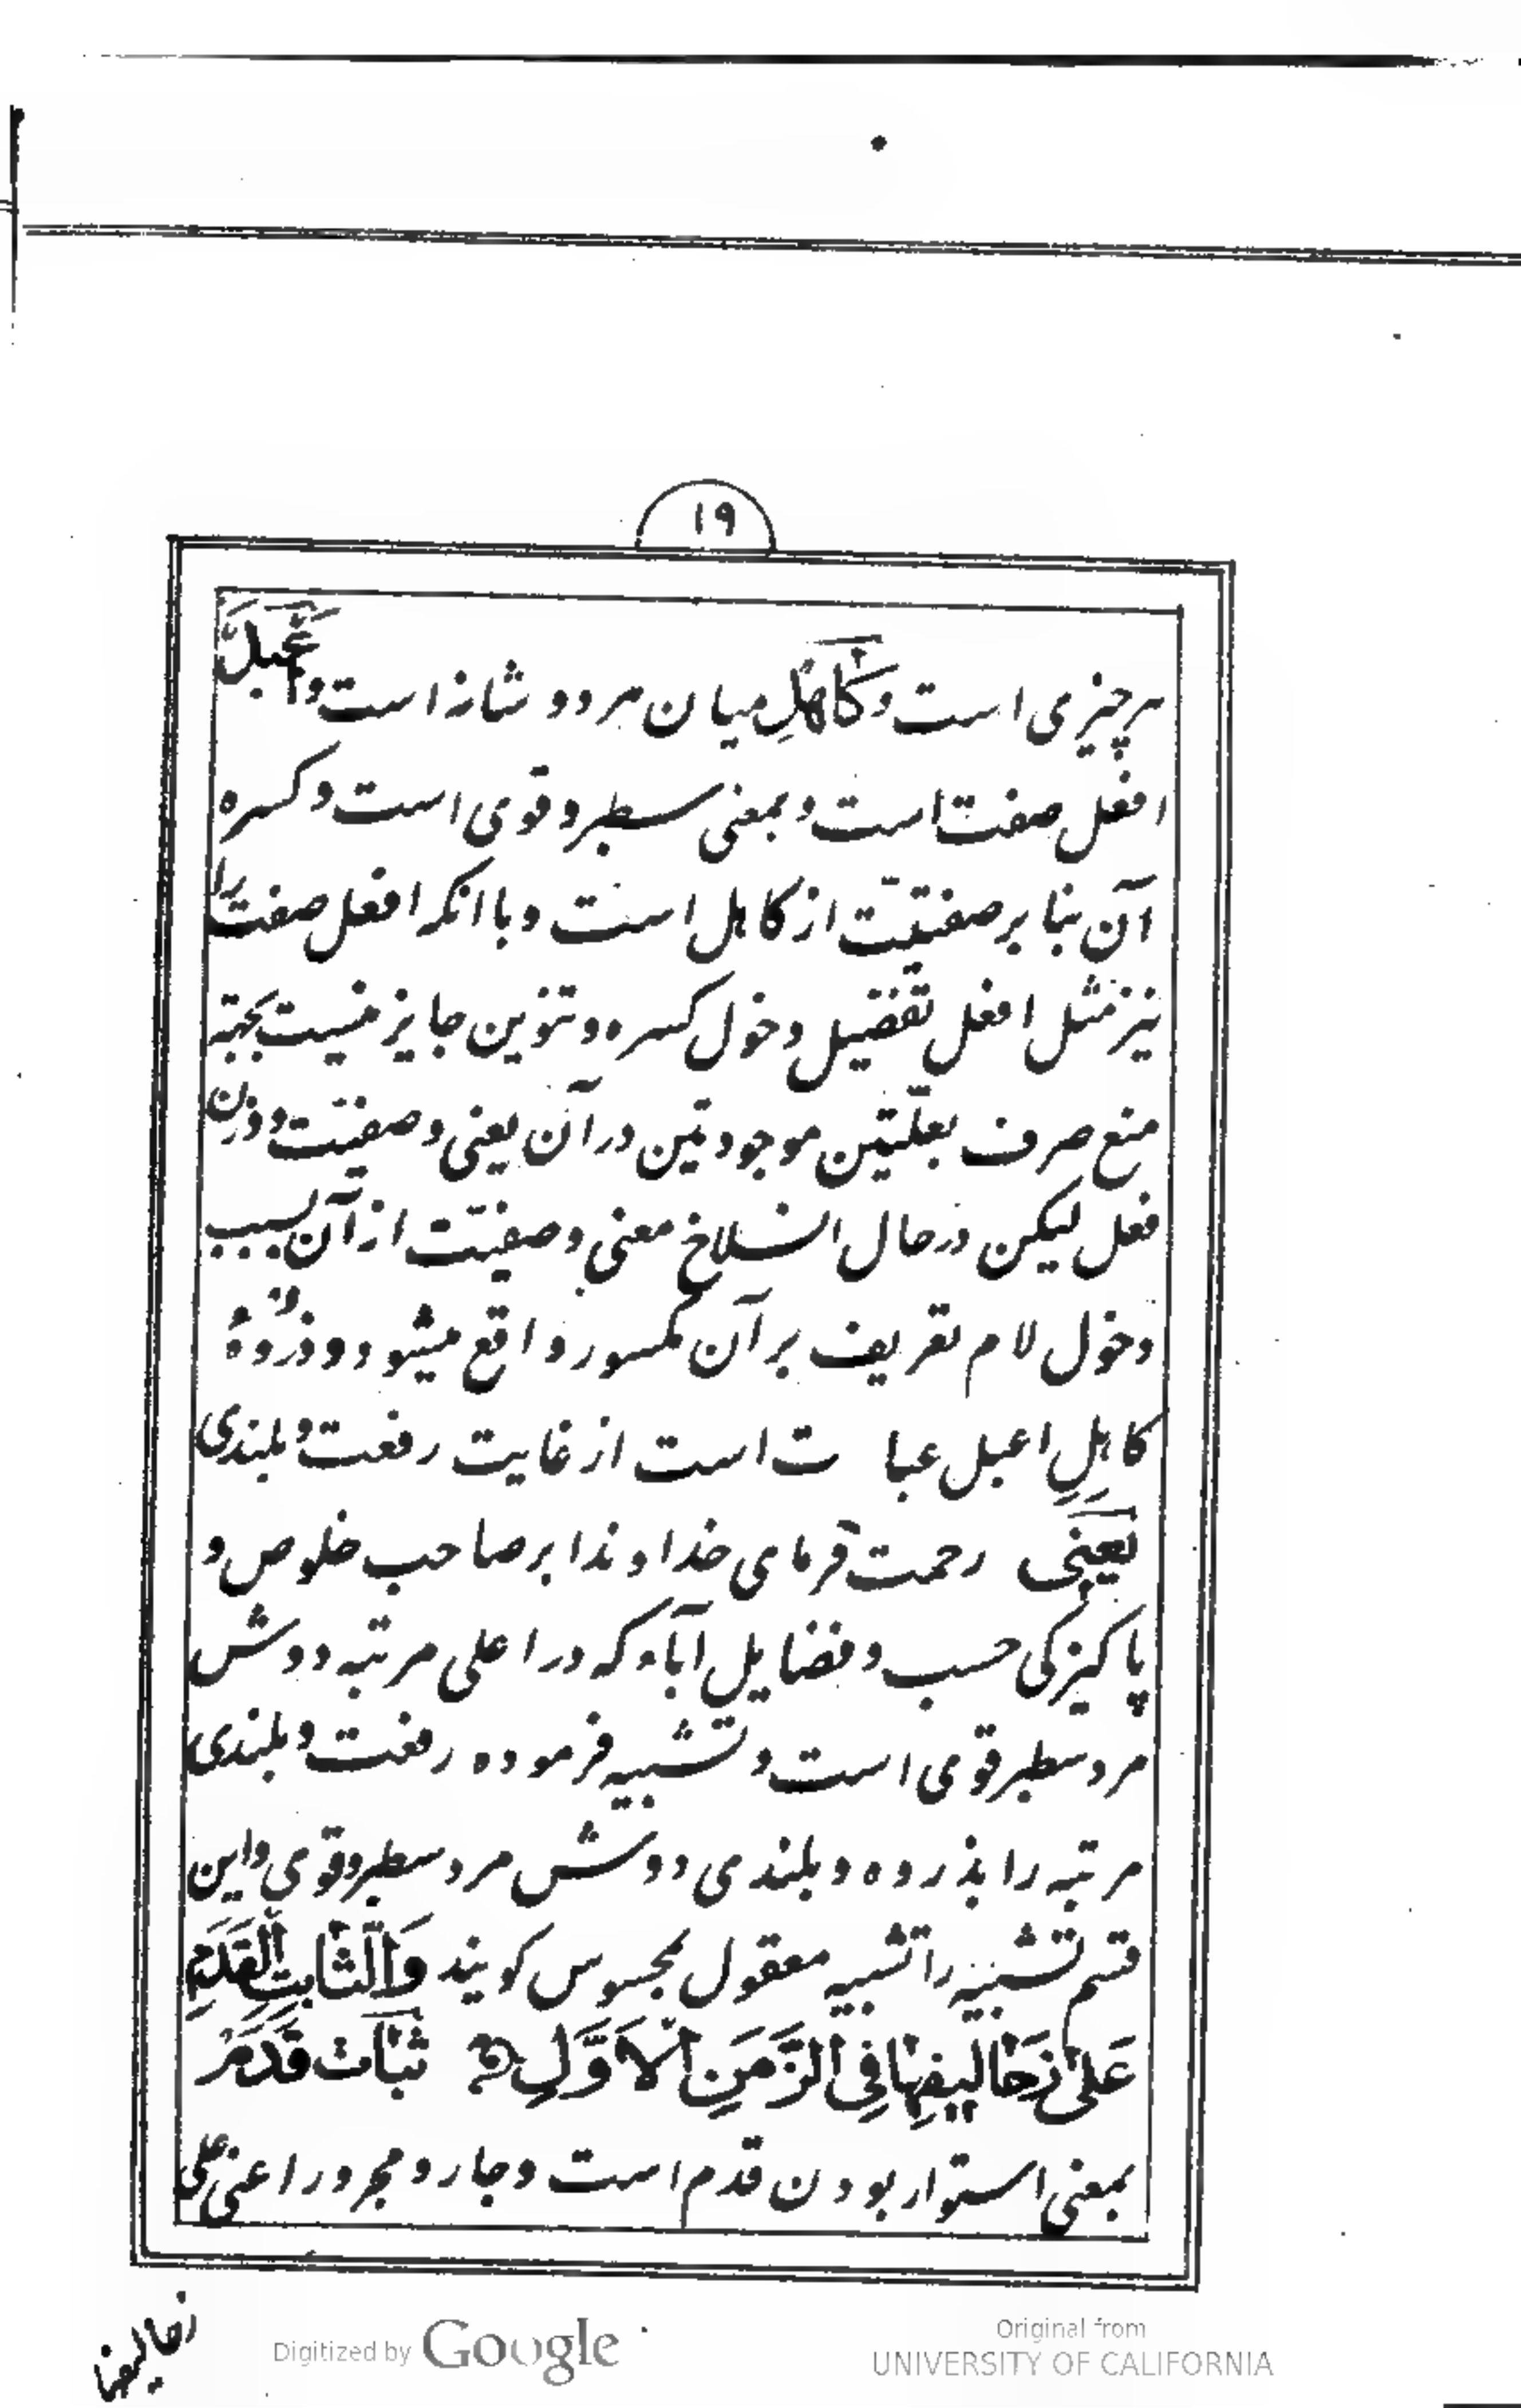 ۱۹
هر چیزی است و کَاهِلِ میان هر دو شانه است و اَعْبَلْ
افعل صفت است و بمعنی سطبر و قوی است و کسره
آن بنا بر صفتیّت از کاهل است و با انکه افعل صفت را
نیز مثل افعل تفضیل دخول کسره و تنوین جایز نیست بجهة
منع صرف بعلّتین موجودتین در آن یعنی وصفیّت و وزن
فعل لیکن در حال انسلاخ معنی وصفیّت از آن بسبب
دخول لام تعریف بر آن مکسور واقع میشود و ذروهٔ
کاهلِ اعبل عبا ت است از غایت رفعت و بلندی
یَعْنی رحمت فرمای خداوندا بر صاحب خلوص و
پاکیزکی حسب و فضایل آباء که در اعلی مرتبه دوش
مرد سطبر قوی است و تشبیه فرموده رفعت و بلندی
مرتبه را بذروه و بلندی دوش مرد سطبر و قوی و این
قسم تشبیه را تشبیه معقول بمحسوس کویند وَالثّابِتِ الْقَدَمِ
عَلیٰ زَحَالیفِهَا فِی الزَّمَنِ الْاَوَّلِ ثبَاتْ قَدَمْ
بمعنی استوار بودن قدم است و جار و مجرور اعنی علی
زحالیفها
Digitized by Google
Original from
UNIVERSITY OF CALIFORNIA